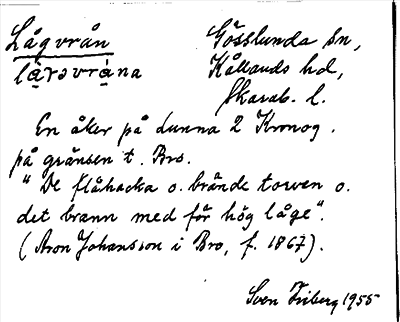 Lågvrån Gösslunda sn,
Kållands hd,
Skarab. l.
En åker på Lunna 2 Kronog.
på gränsen t. Bro.
"De flåhacka o. brände torven o.
det brann med för hög låge".
(Aron Johansson i Bro, f. 1867).
Sven Friberg 1955